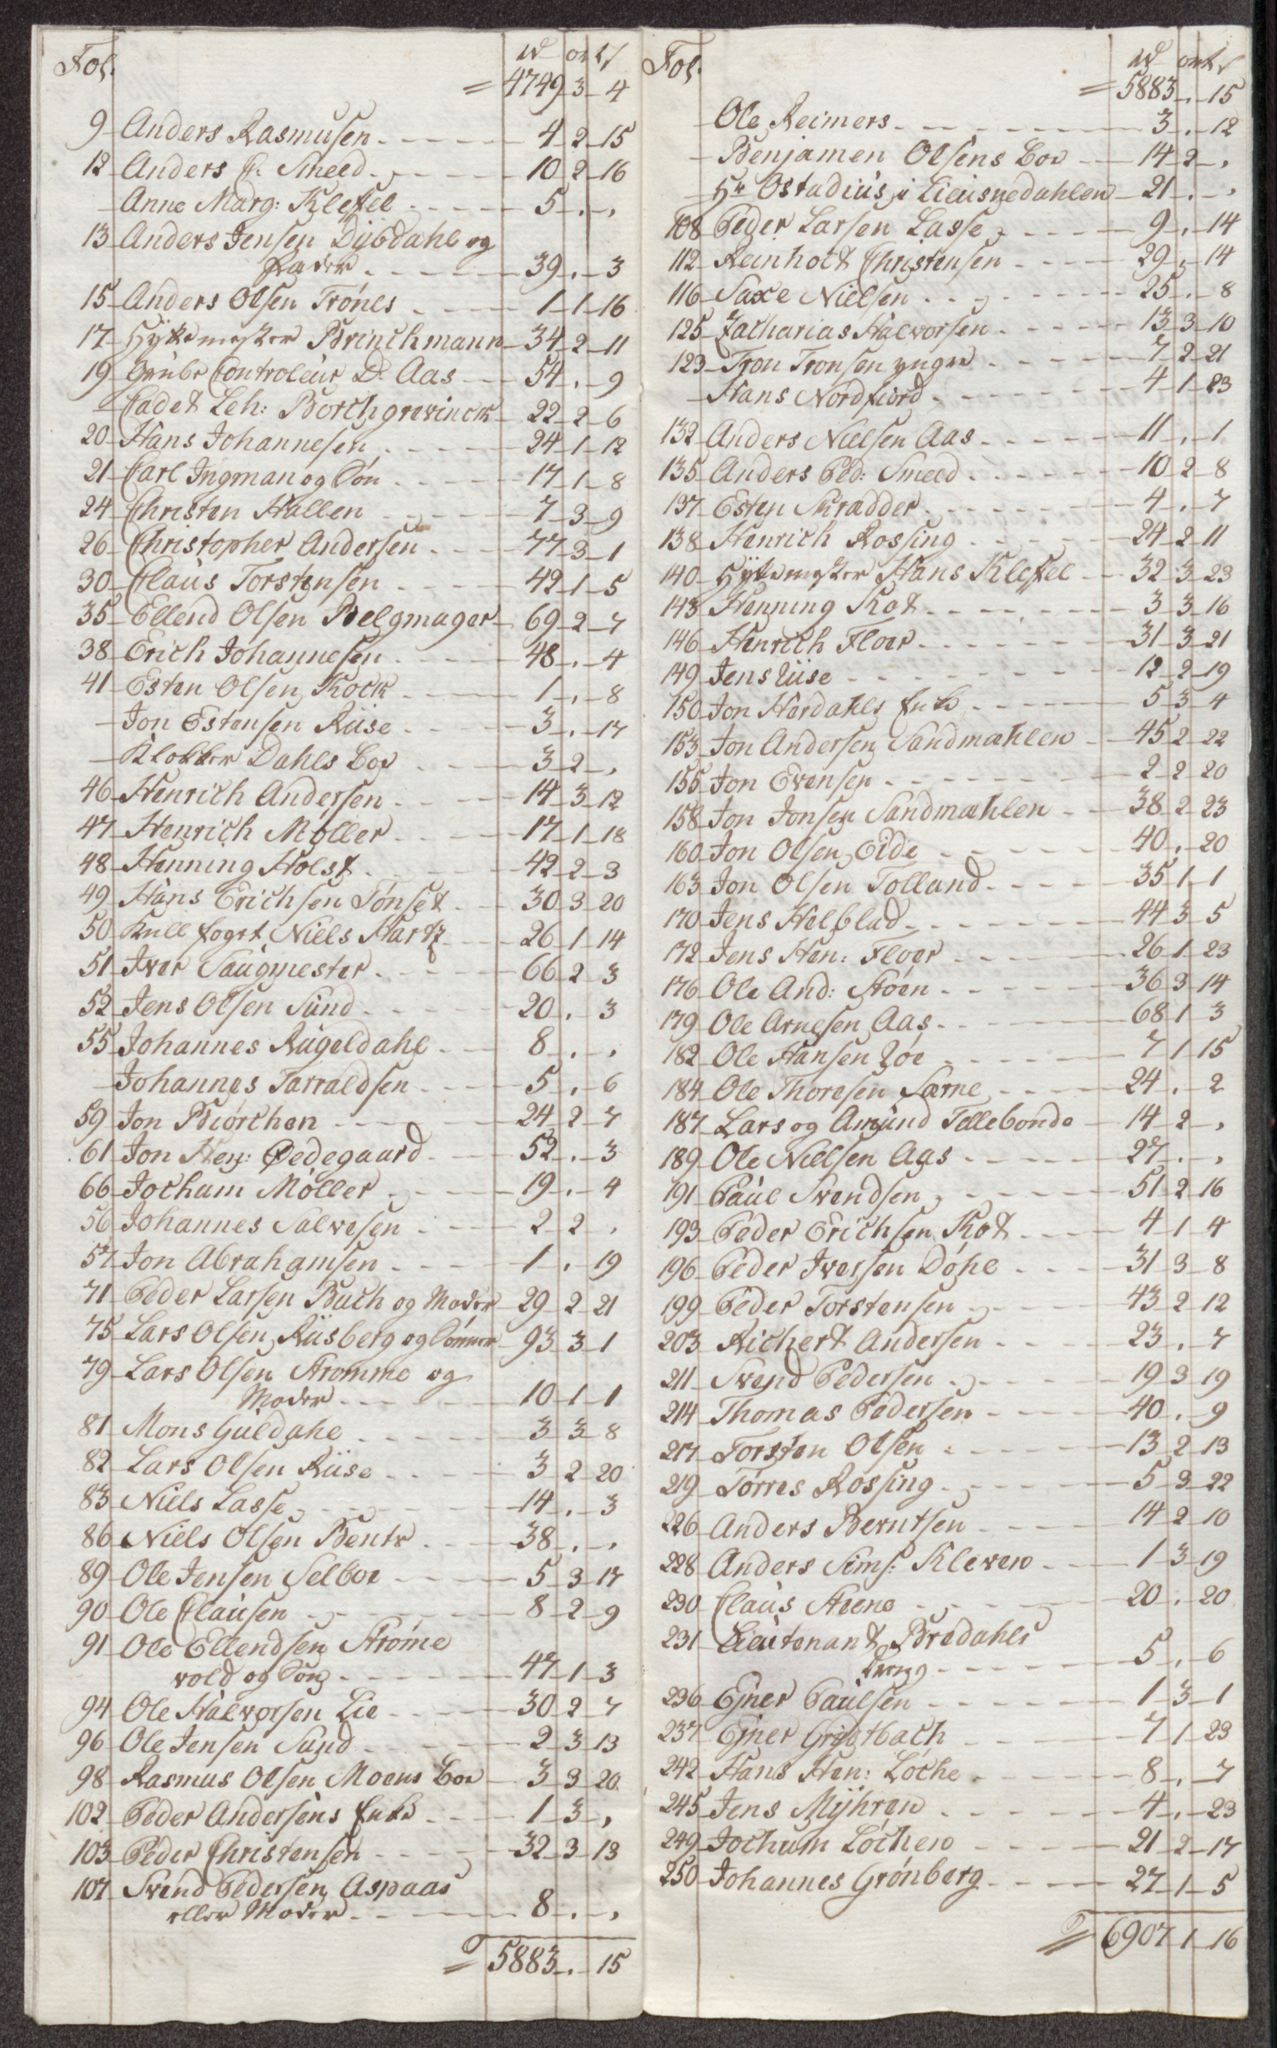 Fol. rd ort s
= 4749 3 4
9 Anders Rasmusen - 4 2 15
12 Anders P: Smeed - 10 2 16
Anne Marg: Klefel - 5 . ,
13 Anders Jensen Dybdahl og
Fader - 39 . 3
15 Anders Olsen Trønes - 1 1 16
17 Hyttemester Brinchmann - 34 2 11
19 Grube Controleur D. Aas - 54 . 9
Cadet Leh: Borchgrevinck - 22 2 6
20 Hans Johannesen - 24 1 12
21 Carl Ingman og Søn - 17 1 8
24 Christen Hallen - 7 3 9
26 Christopher Andersen - 77 3 1
30 Claus Torstensen - 42 1 5
35 Ellend Olsen Belgmager - 69 2 7
38 Erich Johannesen - 48 . 4
41 Esten Olsen Kock - 1 . 8
Jon Estensen Riise - 3 . 17
Klokker Dahls Boe - 3 2 ,
46 Henrich Andersen - 14 3 12
47 Henrich Møller - 17 1 18
48 Henning Holst - 42 2 3
49 Hans Erichsen Tønset - 30 3 20
50 Kull fogst. Niels Hartz - 26 1 14
51 Iver Saugmester - 66 2 3
52 Jens Olsen Sund - 20 . 3
55 Johannes Rugeldahl - 8 . ,
Johannes Tarraldsen - 5 . 6
59 Jon Biörchen - 24 2 7
61 Jon Hen: Ødegaard - 52 . 3
66 Jocham Møller - 19 . 4
56 Johannes Salvesen - 2 2 ,
57 Jon Abrahamsen - 1 . 19
71 Peder Larsen Buch og Moder 29 2 21
75 Lars Olsen Riisberg og Sønner 93 3 1
79 Lars Olsen Strømme og
Moder - 10 1 1
81 Mons Guldahl - 3 3 8
82 Lars Olsen Riise - 3 2 20
83 Niels Lasse - 14 . 3
86 Niels Olsen Bentr - 38 . ,
89 Ole Jensen Selboe - 5 3 17
90 Ole Clausen - 8 2 9
91 Ole Ellendsen Strøme
vold og Søn - 47 1 3
94 Ole Halvorsen Lie - 30 2 7
96 Ole Jensen Sund - 2 3 13
98 Rasmus Olsen Moens Boe - 3 3 20
102 Peder Andersens Enke - 1 3 ,
103 Peder Christensen - 32 3 13
107 Svend Pedersen Aspaas
eller Moder - 8 . ,
5883 . 15
Fol. rd ort s
= 5883 . 15
Ole Reimers - 3 . 12
Benjamen Olsens Boe - 14 2 ,
Hr Ostadius i Lieusnedahlen - 21 . ,
108 Peder Larsen Lasse - 9 . 14
112 Reinholt Christensen - 29 . 14
116 Saxe Nielsen - 25 . 8
125 Zacharias Halvorsen - 13 3 10
123 Tron Tronsen yngre - 7 2 21
Hans Nordfiord - 4 1 23
132 Anders Nielsen Aas - 11 . 1
135 Anders Ped: Smeed - 10 2 8
137 Esten Skrædder - 4 . 7
138 Henrich Rossing - 24 2 11
140 Hyttemester Hans Klefel - 32 3 23
143 Henning Kot - 3 3 16
146 Henrich Floer - 31 3 21
149 Jens Riise - 12 2 19
150 Jon Nordahls Enke - 5 3 4
153 Jon Andersen Sandmæhlen - 45 2 22
155 Jon Evensen - 2 2 20
158 Jon Jonsen Sandmæhlen - 38 2 23
160 Jon Olsen Eide - 40 . 20
163 Jon Olsen Tolland - 35 1 1
170 Jens Helblad - 44 3 5
172 Jens Hen: Floer - 26 1 23
176 Ole And: Støen - 36 3 14
179 Ole Arnesen Aas - 68 1 3
182 Ole Hansen Røe - 7 1 15
184 Ole Thoresen Særne - 24 . 2
187 Lars og Amund Tellebonde - 14 2 ,
189 Ole Nielsen Aas - 27 . ,
191 Paul Svendsen - 51 2 16
193 Peder Erichsen Kot - 4 1 4
196 Peder Iversen Døhl - 31 3 8
199 Peder Torstensen - 43 2 12
203 Richert Andersen - 23 . 7
211 Svend Pedersen - 19 3 19
214 Thomas Pedersen - 40 . 9
217 Torsten Olsen - 13 2 13
219 Tørres Rossing - 5 3 22
226 Anders Berntsen - 14 2 10
228 Anders Sims: Kleven - 1 3 19
230 Claus Steene - 20 . 20
231 Lieutenant Bredahls
Dreng - 5 . 6
236 Ejner Paulsen - 1 3 1
237 Ejner Gristbach - 7 1 23
242 Hans Hen: Løche - 8 . 7
245 Jens Myhren - 4 . 23
249 Jochum Løchen - 21 2 17
250 Johannes Grønberg - 27 1 5
6907 1 16